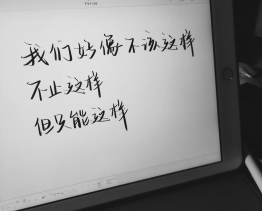 我们好像不该这样
不止这样
但只能这样